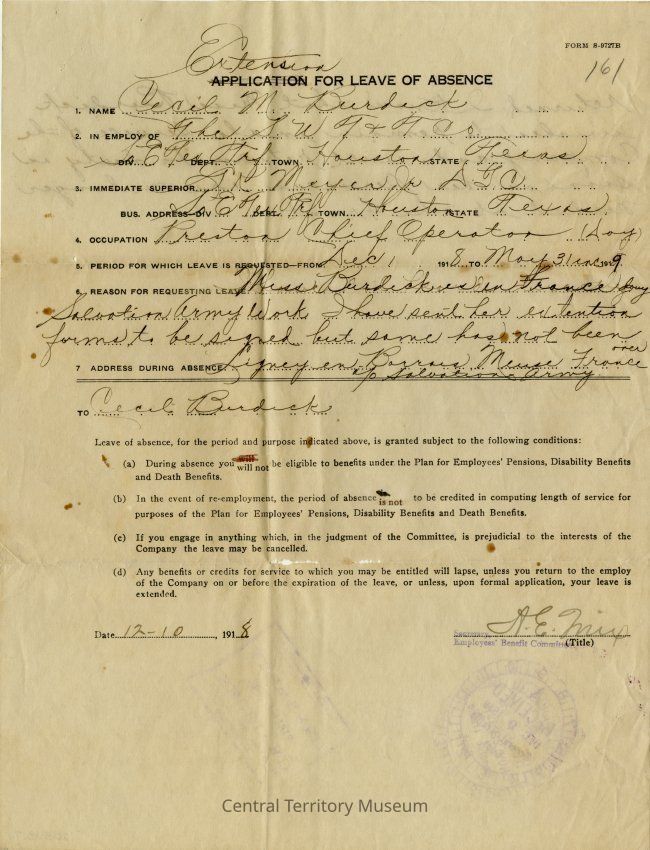 FORM S-9727B
161
Extension
APPLICATION FOR LEAVE OF ABSENCE
1. NAME Cecil M. Burdick
2. IN EMPLOY OF The S W T & T Co
DIV. S. E. Tex DEPT. Trf TOWN Houston STATE Texas
3. IMMEDIATE SUPERIOR Meyer Jr
BUS. ADDRESS—DIV S. E. Tex DEPT. Trf TOWN Houston STATE Texas
4. OCCUPATION Preston Chief Operator (Day)
5. PERIOD FOR WHICH LEAVE IS REQUESTED—FROM Dec 1 1918 TO May 31 inc 1919
6. REASON FOR REQUESTING LEAVE Miss Burdick is in France doing
Salvation Army Work I have sent her extention
forms to be signed but same has not been
over
7 ADDRESS DURING ABSENCE Ligney en Barrois Meuse France
c/o Salvation Army
TO Cecil Burdick
Leave of absence, for the period and purpose indicated above, is granted subject to the following conditions:
(a) During absence you will not be eligible to benefits under the Plan for Employees' Pensions, Disability Benefits
and Death Benefits.
(b) In the event of re-employment, the period of absence is not to be credited in computing length of service for
purposes of the Plan for Employees' Pensions, Disability Benefits and Death Benefits.
(c) If you engage in anything which, in the judgment of the Committee, is prejudicial to the interests of the
Company the leave may be cancelled.
(d) Any benefits or credits for service to which you may be entitled will lapse, unless you return to the employ
of the Company on or before the expiration of the leave, or unless, upon formal application, your leave is
extended.
Date 12-10 1918
A. E.
Secretary
Employees' Benefit Committee (Title)
Central Territory Museum